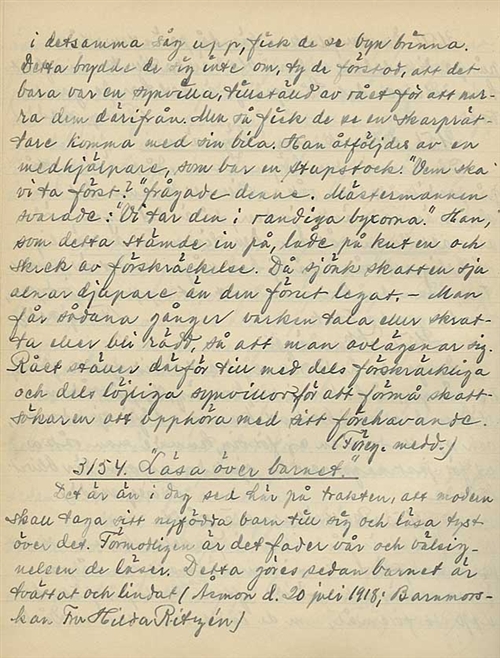 i detsamma såg upp, fick de se byn brinna.
Detta brydde de sig inte om, ty de förstod, att det
bara var en synvilla, tillställd av rået för att nar-
ra dem därifrån. Men så fick de se en skarprät-
tare komma med sin bila. Han åtföljdes av en
medhjälpare, som bar en stupstock. "Vem ska
vi ta först?" frågade denne. Mästermannen
svarade: "Vi tar den i randiga byxorna." Han,
som detta stämde in på, lade på kuten och
skrek av förskräckelse. Då sjönk skatten sju
alnar djupare än den förut legat. – Man
får sådana gånger varken tala eller skrat-
ta eller bli rädd, så att man avlägsnar sig.
Rået ställer därför till med dels förskräckliga
och dels löjliga synvillor för att förmå skatt-
sökaren att upphöra med sitt förehavande.
(Föreg. medd.)
3154. "Läsa över barnet."
Det är än i dag sed här på trakten, att modern
skall taga sitt nyfödda barn till sig och läsa tyst
över det. Förmodligen är det fader vår och välsig-
nelsen de läser. Detta göres sedan barnet är
tvättat och lindat (Åmon d. 20 juli 1918; Barnmors-
kan Fru Hilda Ritzén)